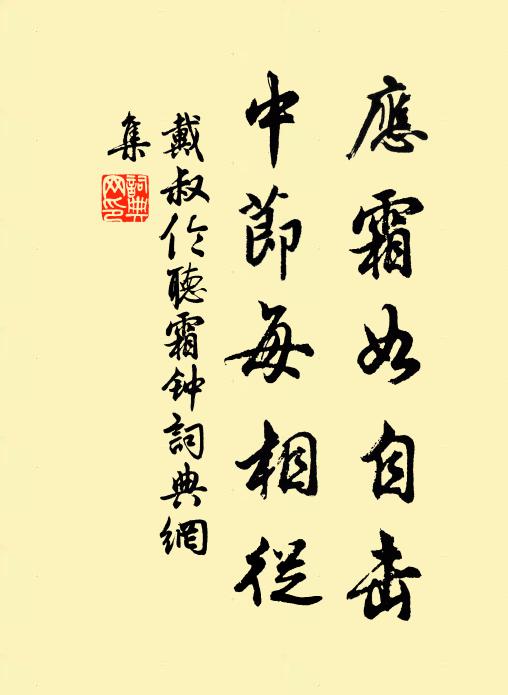 應霜如自擊
中節每相從
戴叔伦聽霜钟詞典網
集
詞典網印